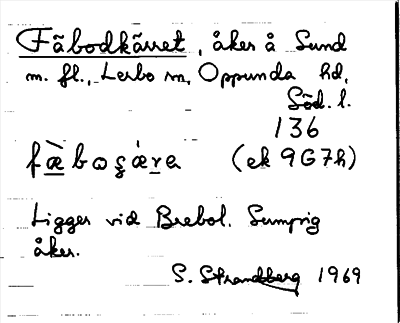 Fäbodkärret, åker å Sund
m. fl., Lerbo sn, Oppunda hd,
Söd. l.
136
(ek 9G7h)
Ligger vid Brebol. Sumpig
åker.
S. Strandberg 1969